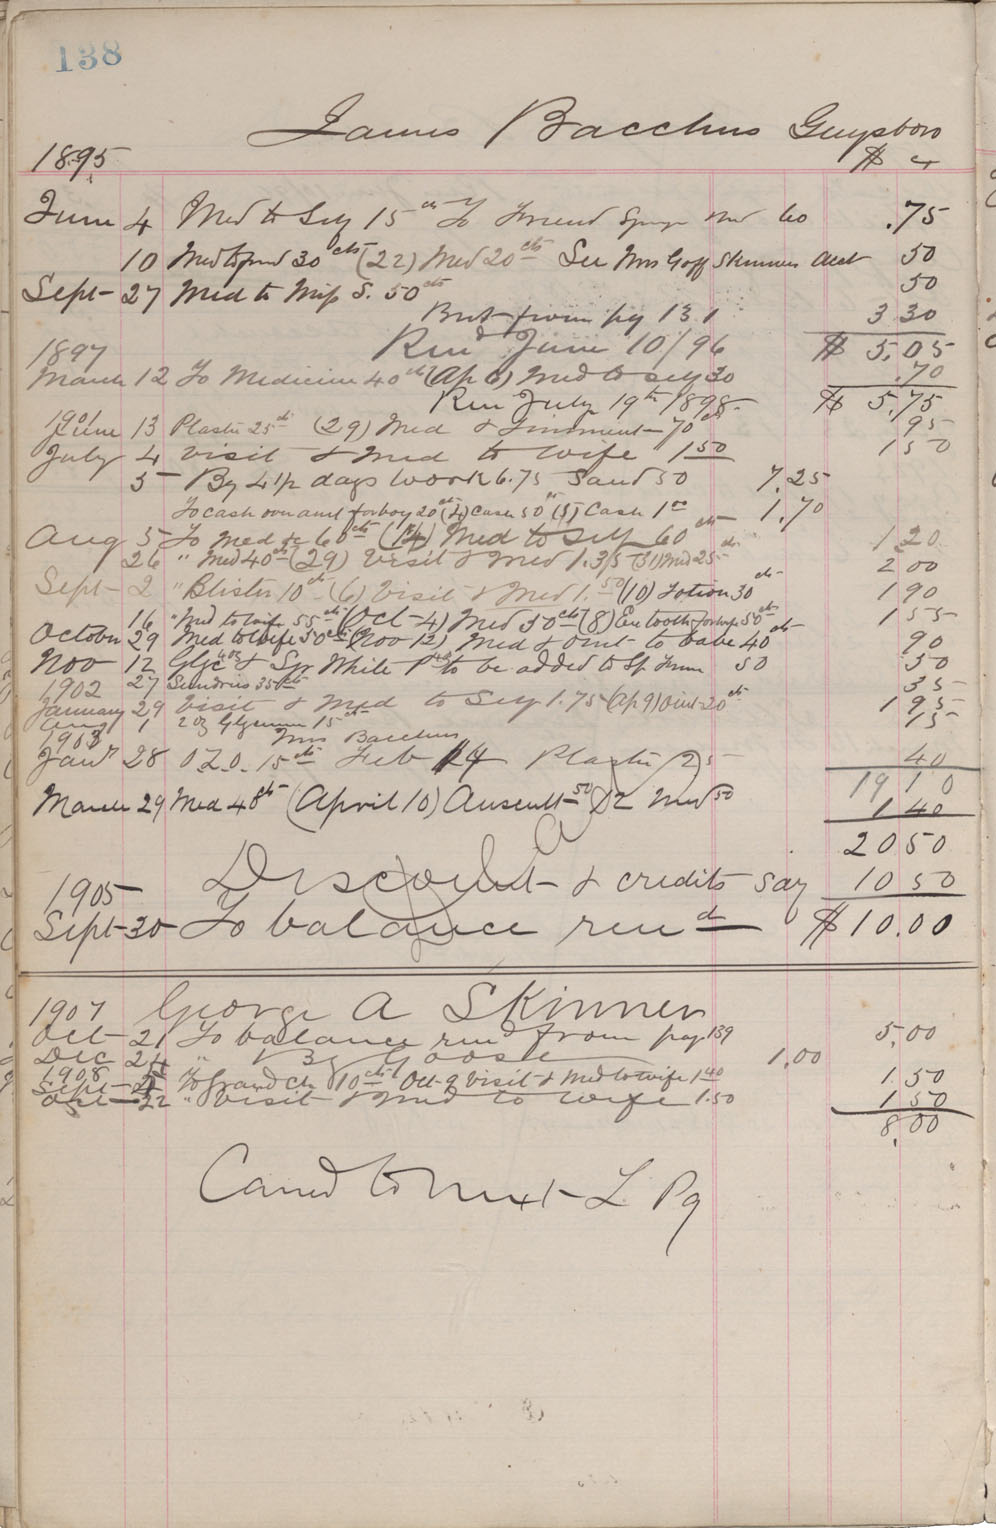 138
James Bacchus Guysboro
1895 $ c
June 4 Med to Self 15 cts To Friend Spunge Med 60 .75
10 Med to frend 30 cts (22) Med 20 cts See Mrs Goff Skinners Acct 50
Sept 27 Med to Miss S. 50 cts 50
Brt from pg 131 3 30
Rend June 10/96 $ 5.05
1897
March 12 To Medicine 40 cts (Ap 6) Med to self 30 .70
Ren July 19th 1898 $ 5.75
1901
June 13 Plaster 25 cts (29) Med & Liniment 70 cts 95
July 4 visit & Med to wife 1 50 1 50
5 By 4 1/2 days work 6.75 Sand 50 7.25
To cash on amt for boy 20 cts (4) Cash 50 cts (5) Cash 1 00 1.70
Aug 5 To Med &c 60 cts (14) Med to Self 60 cts 1 20
26 " Med 40 cts (29) visit & Med 1.35 (31) Med 25 cts 2 00
Sept 2 " Blister 10 cts (6) Visit & Med 1.50 (10) Lotion 30 cts 1 90
16 " Med to wife 55 cts (Oct 4) Med 50 cts (8) Ex tooth for wife 50 cts 1 55
October 29 Med to wife 50 cts (Nov 12) Med & Oint to babe 40 cts 90
Nov 12 Glyc 4 oz & Spr White P to be added to Sp 50 50
27 Sundries 35 cts 35
1902
January 29 Visit & Med to Self 1.75 (Ap 9) Oint 20 cts 1 95
Aug 1 2 oz Glycerine 15 cts 15
1903 Mrs Bacchus
Janr 28 OZO. 15 cts Feb 14 Plaster 25 40
19 10
March 29 Med 40 cts (April 10) 50 Med 50 1 40
20 50
Discount & credits say 10 50
1905
Sept 30 To balance rend $10.00
1907 George A Skinner
Oct 21 To balance rend from page 139 5.00
Dec 24 " By Goose 1.00
1908
Sept To Grand ch 10 cts Oct 9 visit & Med to wife 1 40 1.50
Oct 22 " Visit & Med to wife 1.50 1 50
8.00
Carried to next L Pg